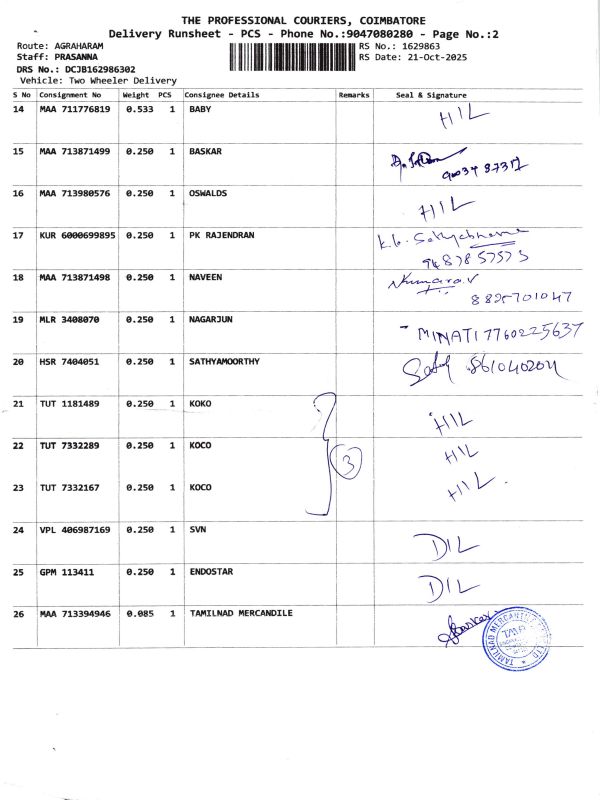 THE PROFESSIONAL COURIERS, COIMBATORE
Delivery Runsheet - PCS - Phone No.:9047080280 - Page No.:2
Route: AGRAHARAM RS No.: 1629863
Staff: PRASANNA RS Date: 21-Oct-2025
DRS No.: DCJB162986302
Vehicle: Two Wheeler Delivery
S No Consignment No Weight PCS Consignee Details Remarks Seal & Signature
14 MAA 711776819 0.533 1 BABY HIL
15 MAA 713871499 0.250 1 BASKAR
16 MAA 713980576 0.250 1 OSWALDS HIL
17 KUR 6000699895 0.250 1 PK RAJENDRAN
9487857573
18 MAA 713871498 0.250 1 NAVEEN Kumara.V
8825701047
19 MLR 3408070 0.250 1 NAGARJUN MINATI 7760225637
20 HSR 7404051 0.250 1 SATHYAMOORTHY 861040204
21 TUT 1181489 0.250 1 KOKO HIL
22 TUT 7332289 0.250 1 KOCO 3 HIL
23 TUT 7332167 0.250 1 KOCO HIL
24 VPL 406987169 0.250 1 SVN DIL
25 GPM 113411 0.250 1 ENDOSTAR DIL
26 MAA 713394946 0.085 1 TAMILNAD MERCANDILE